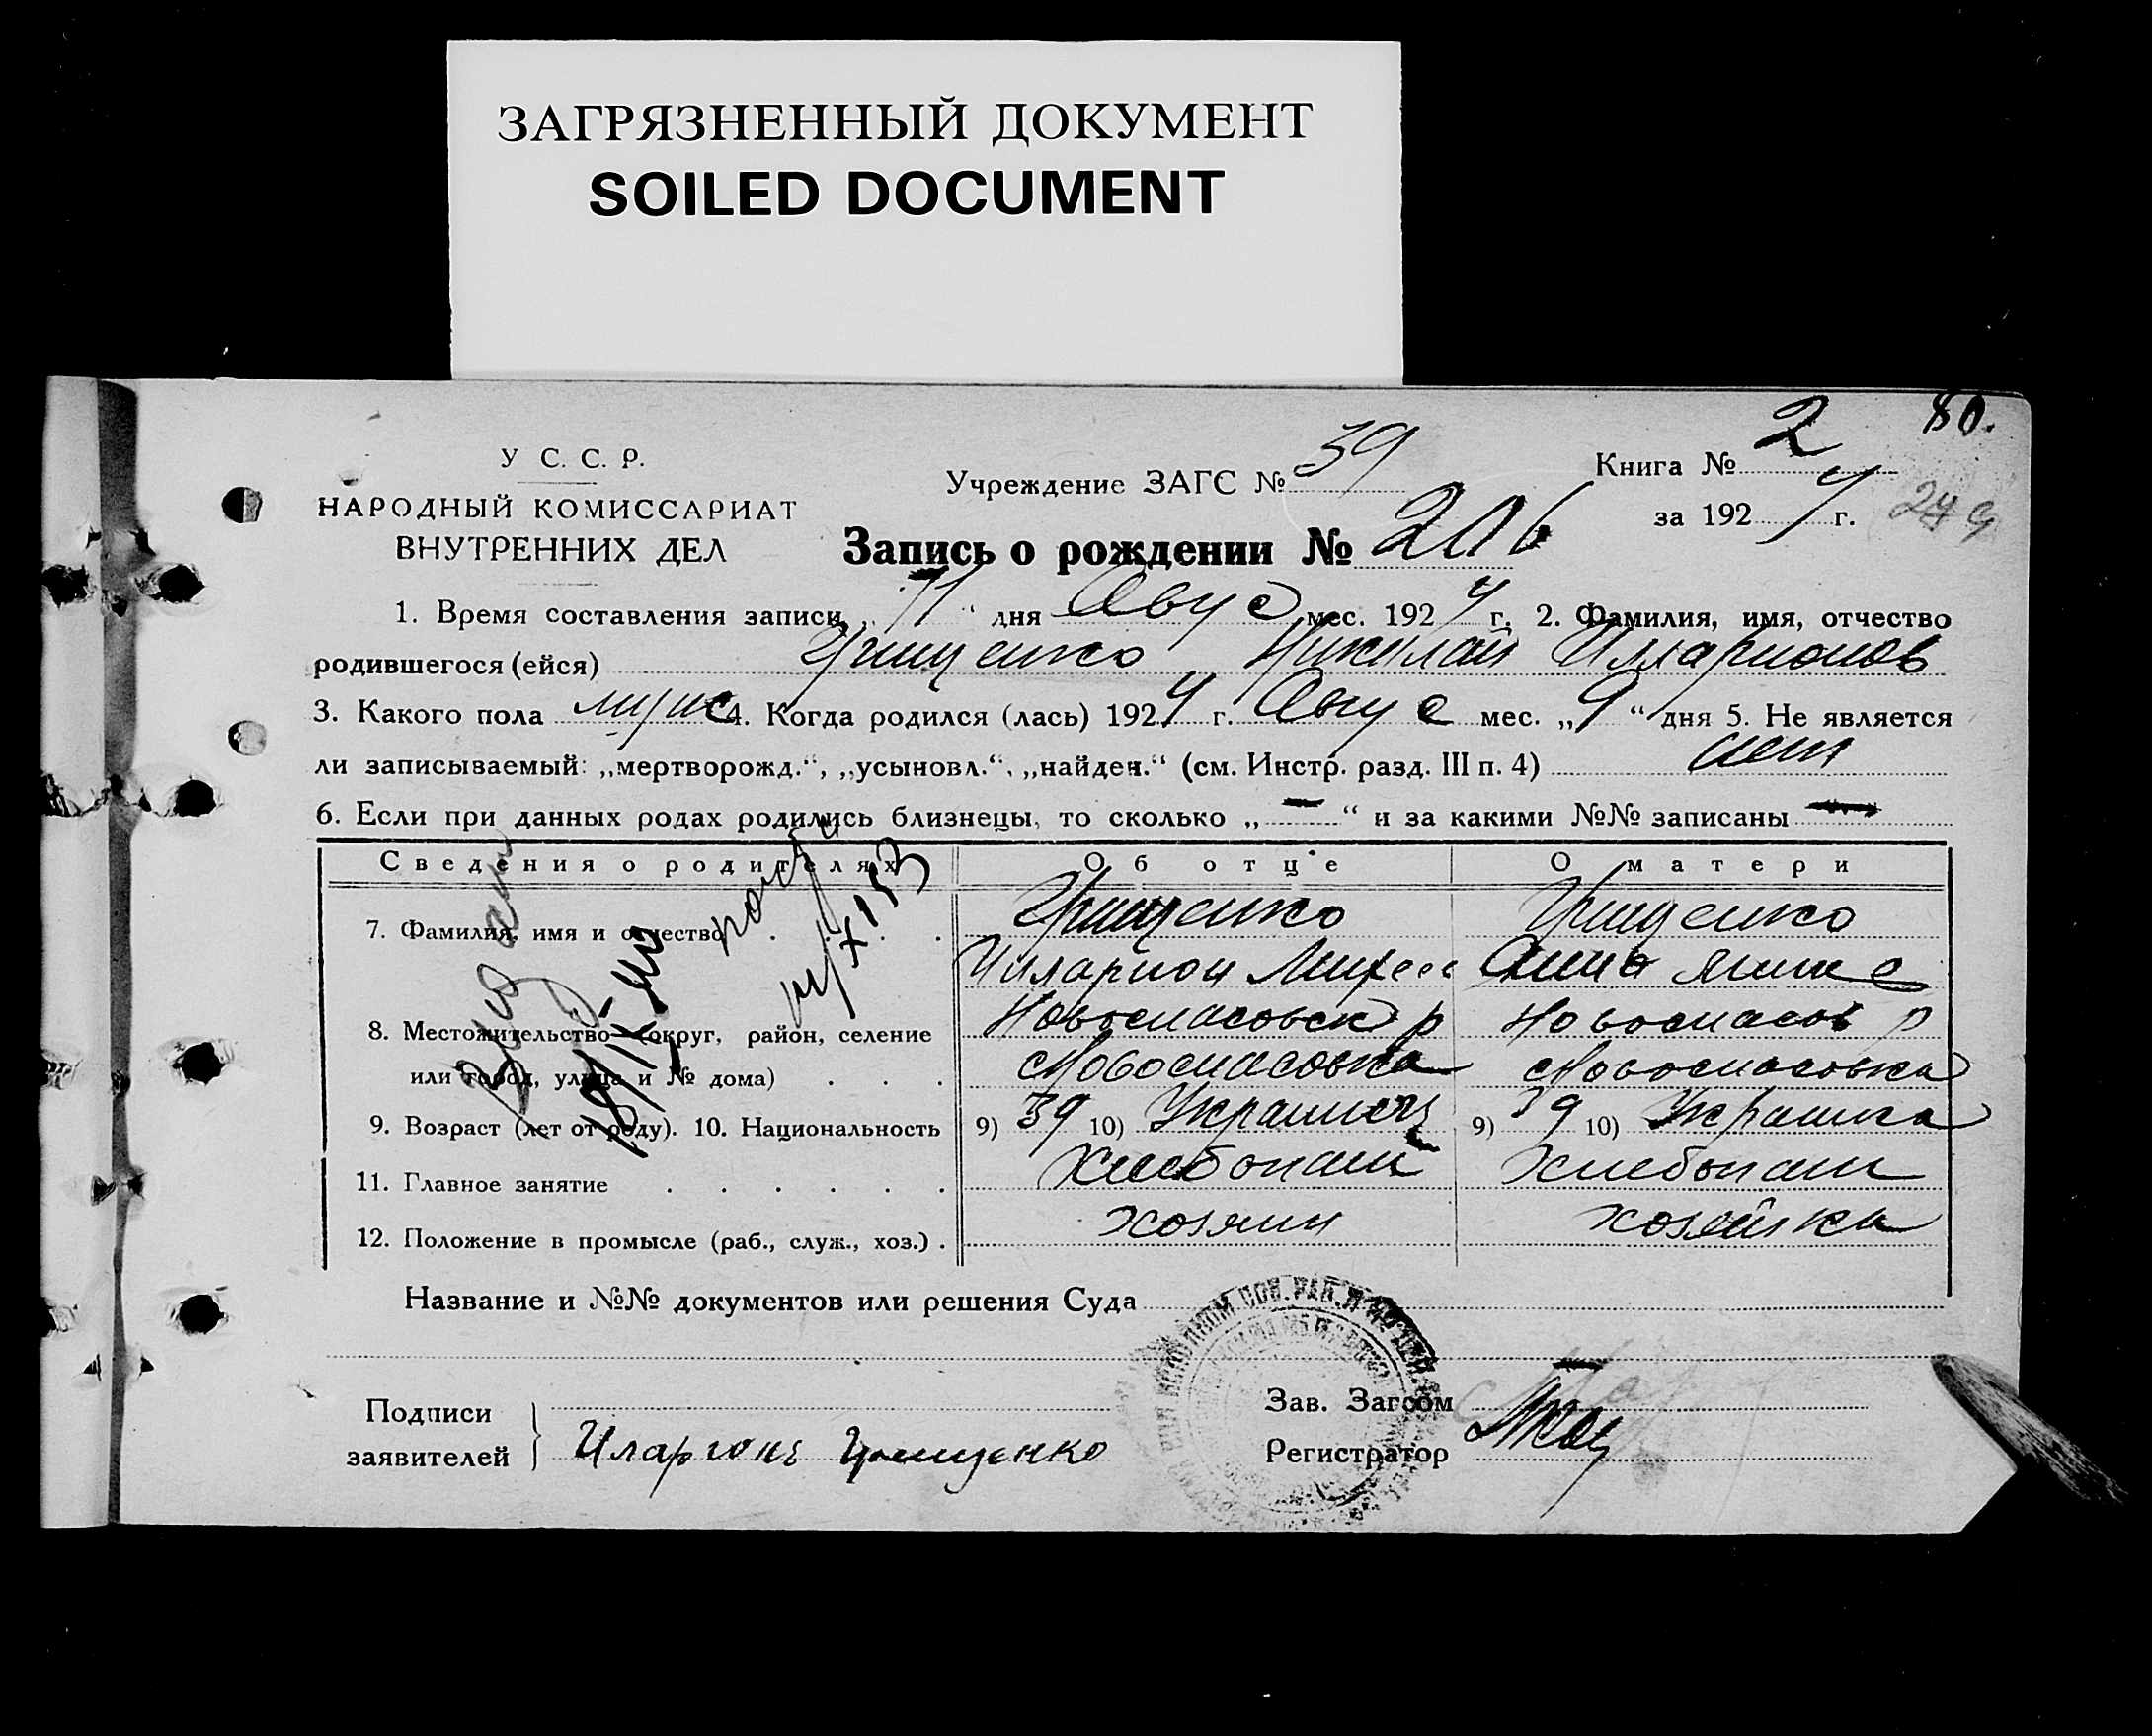 ЗАГРЯЗНЕННЫЙ ДОКУМЕНТ
SOILED DOCUMENT
80.
У С. С. Р.
НАРОДНЫЙ КОМИССАРИАТ
ВНУТРЕННИХ ДЕЛ
Учреждение ЗАГС № 39
Книга № 2
за 1924 г.
Запись о рождении № 206
1. Время составления записи „11“ дня Авгус мес. 1924 г. 2. Фамилия, имя, отчество
родившегося (ейся) Грищенко Николай Илларионов
3. Какого пола мужс 4. Когда родился (лась) 1924 г. Авгус мес. „9“ дня 5. Не является
ли записываемый: „мертворожд.“, „усыновл.“, „найден.“ (см. Инстр. разд. III п. 4) нет
6. Если при данных родах родились близнецы, то сколько „—“ и за какими №№ записаны —
Сведения о родителях Об отце О матери
7. Фамилия, имя и отчество Грищенко Грищенко
Илларион Анна
8. Местожительство (округ, район, селение Новоспасовск р Новоспасов р
или город, улица и № дома) с Новоспасовка с Новоспасовка
9. Возраст (лет от роду). 10. Национальность 9) 39 10) Украинец 9) 39 10) Украинка
11. Главное занятие Хлебопаш Хлебопаш
12. Положение в промысле (раб., служ., хоз.) хозяин хозяйка
Название и №№ документов или решения Суда
Подписи
заявителей Иларионъ Грищенко
Зав. Загсом
Регистратор